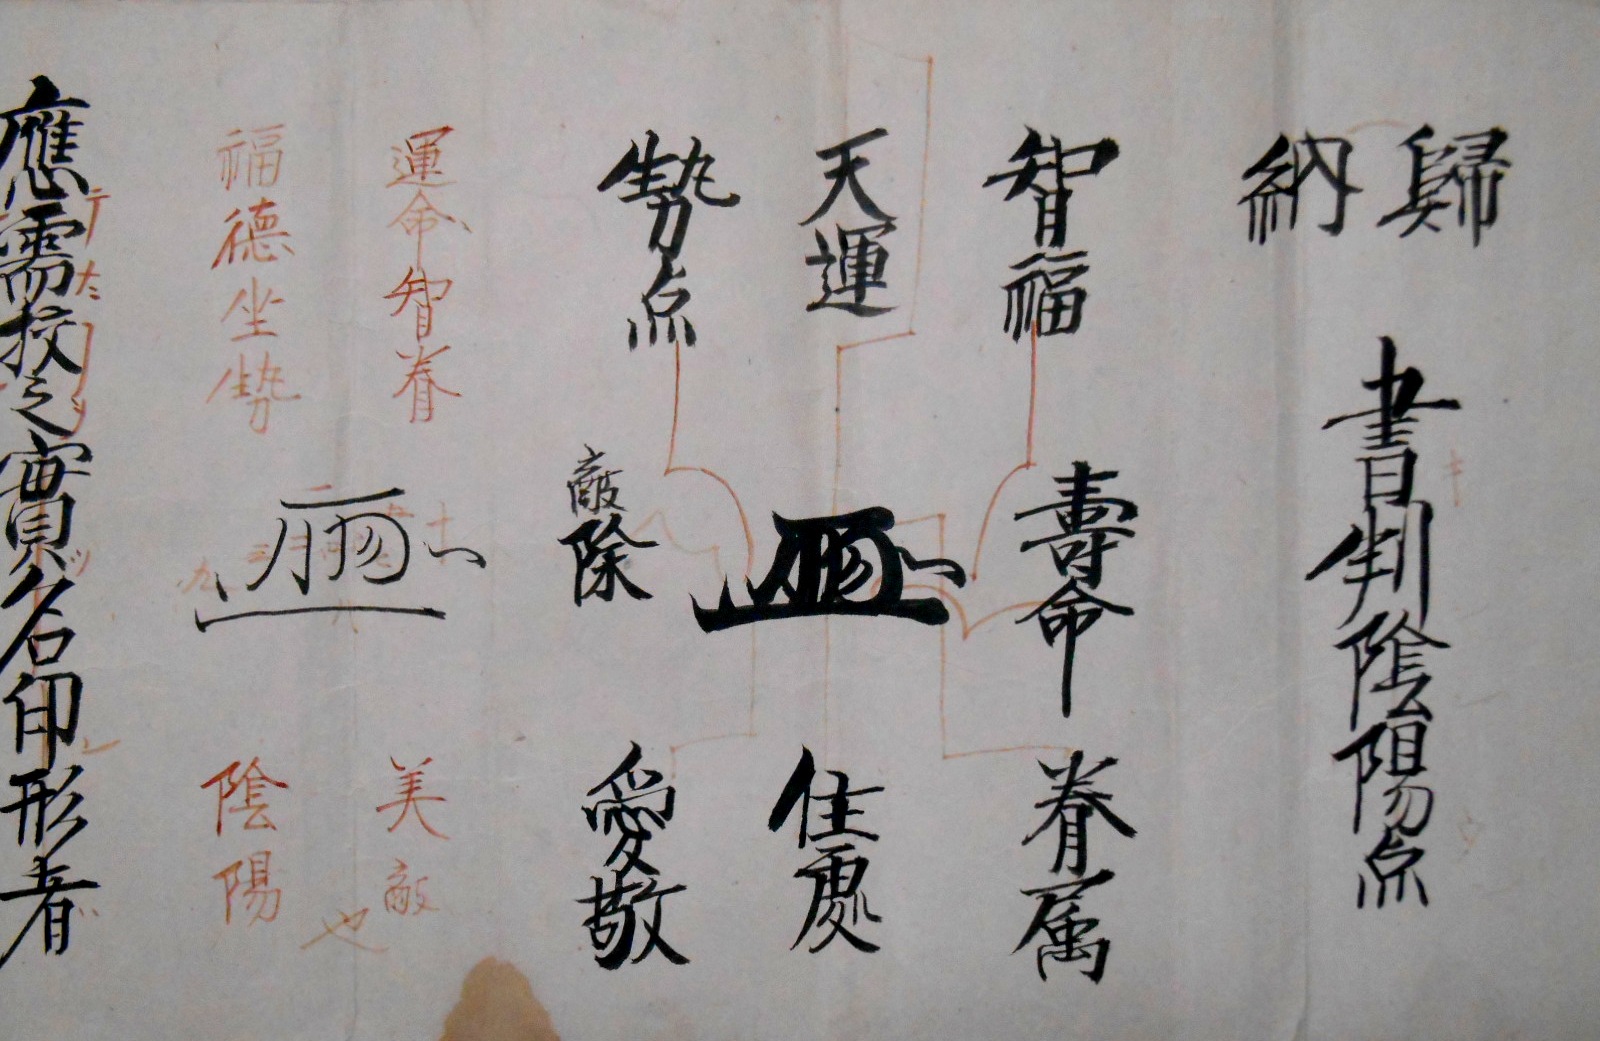 歸納
書判陰陽点
智福
壽命
眷属
天運
住處
勢点
敵除
愛敬
運命智眷
美敵
福德坐勢
陰陽
也
應需授之實名印形者